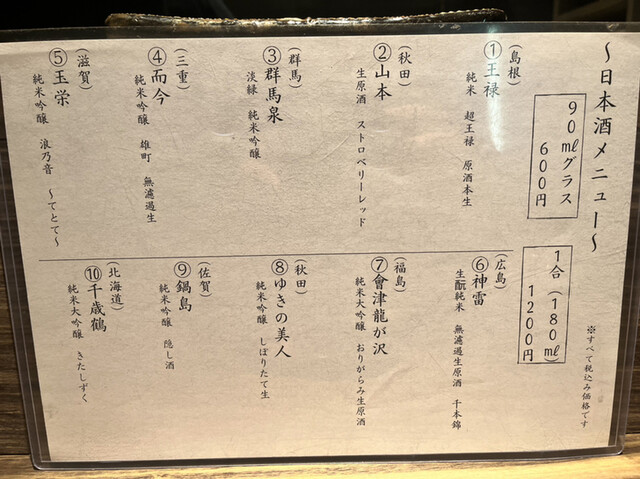 ～日本酒メニュー～
90㎖グラス
600円
1合(180㎖)
1200円
※すべて税込み価格です
(島根)
①王禄
純米 超王禄 原酒本生
(秋田)
②山本
生原酒 ストロベリーレッド
(群馬)
③群馬泉
淡緑 純米吟醸
(三重)
④而今
純米吟醸 雄町 無濾過生
(滋賀)
⑤玉栄
純米吟醸 浪乃音 ～てとて～
(広島)
⑥神雷
生酛純米 無濾過生原酒 千本錦
(福島)
⑦會津龍が沢
純米大吟醸 おりがらみ生原酒
(秋田)
⑧ゆきの美人
純米吟醸 しぼりたて生
(佐賀)
⑨鍋島
純米吟醸 隠し酒
(北海道)
⑩千歳鶴
純米大吟醸 きたしずく